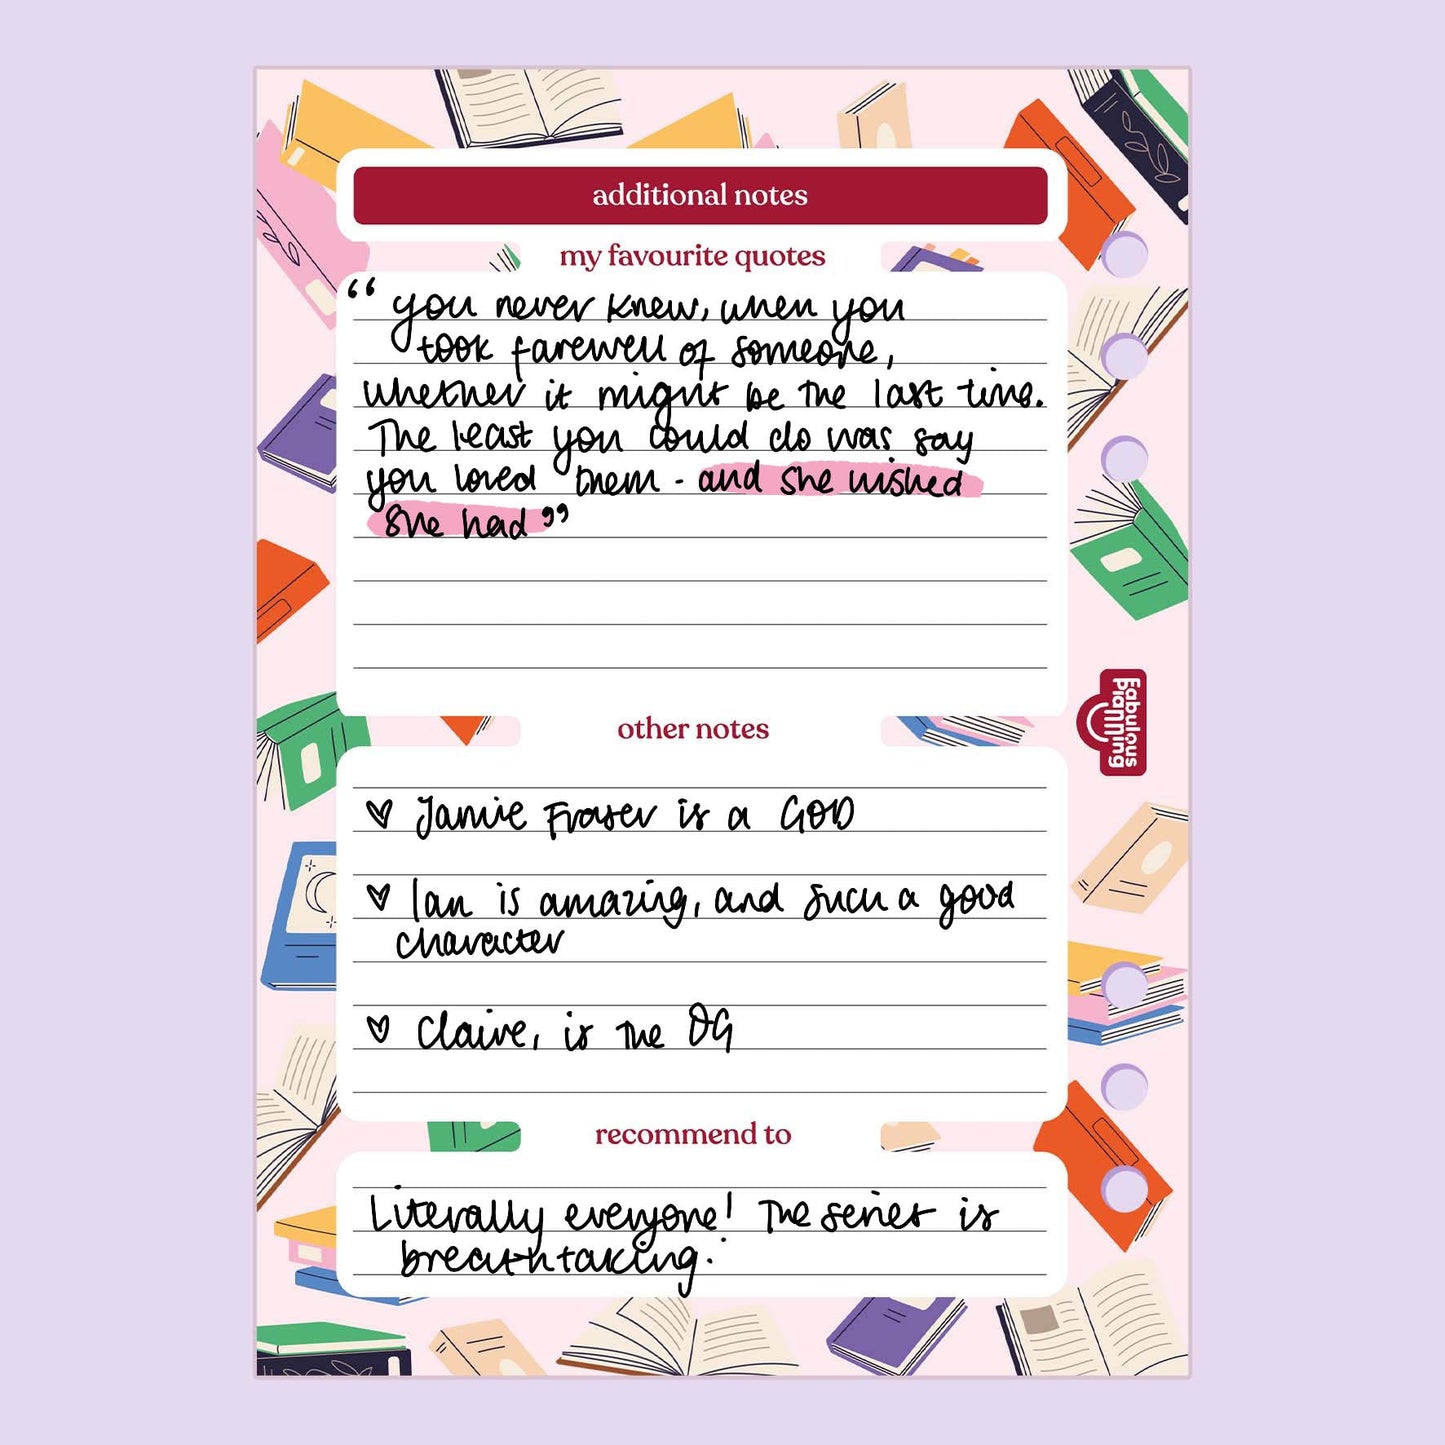 additional notes
my favourite quotes
“ you never knew, when you
took farewell of someone,
whether it might be the last time.
The least you could do was say
you loved them - and she wished
she had ”
other notes
♡ Jamie Fraser is a GOD
♡ Ian is amazing, and such a good
character
♡ Claire, is the OG
recommend to
Literally everyone! The series is
breathtaking.
Fabulous
Planning